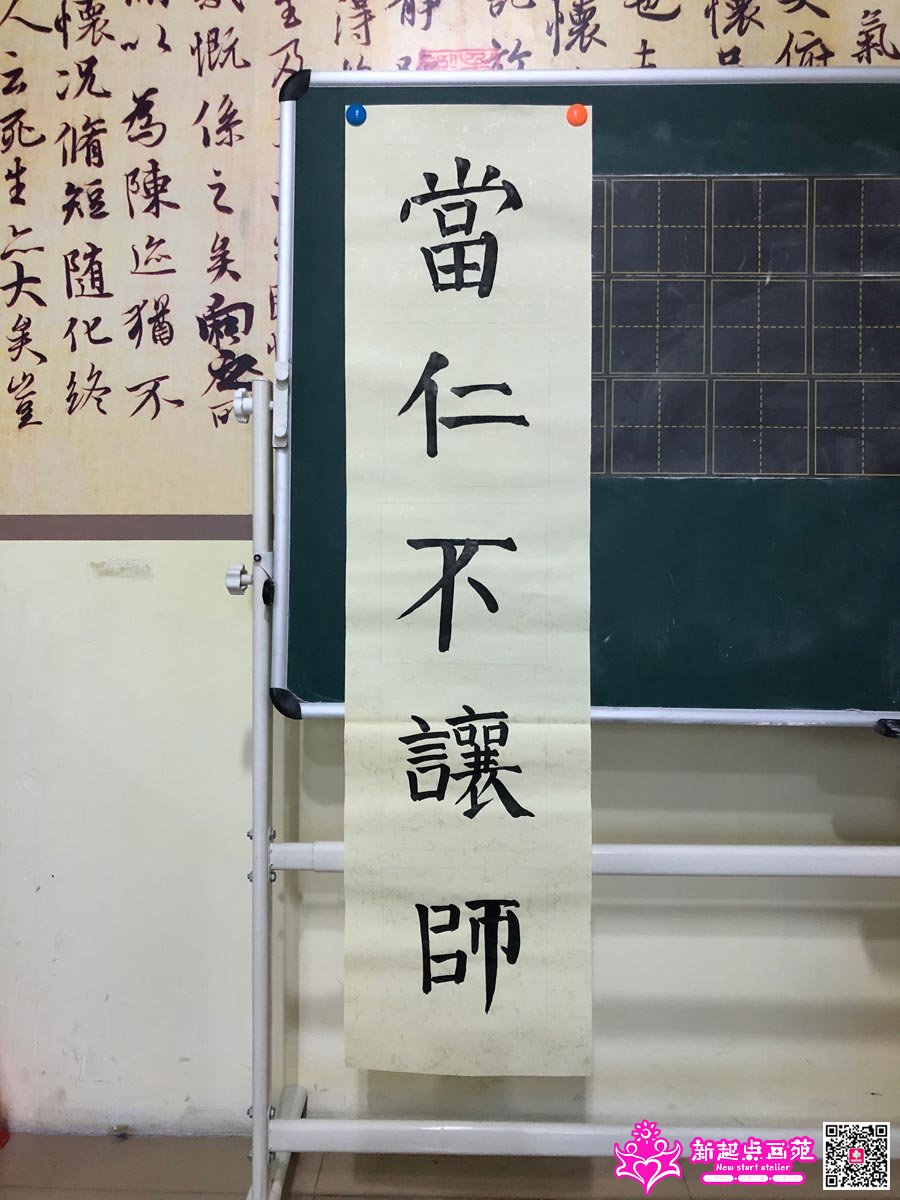 當仁不讓師
氣
俯
懷
懷
静
得
及
慨係之矣
以為陳迹猶不
懷況脩短随化終
人云死生亦大矣豈
新起点画苑
New start atelier